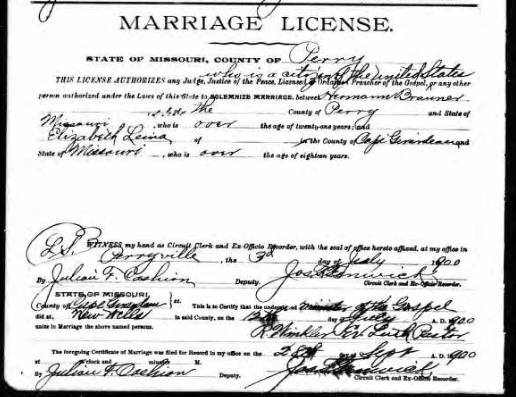 MARRIAGE LICENSE.
STATE OF MISSOURI, COUNTY OF Perry
who is a citizen of the United States
THIS LICENSE AUTHORIZES any Judge, Justice of the Peace, Licensed or Ordained Preacher of the Gospel, or any other
person authorized under the Laws of this State to SOLEMNIZE MARRIAGE, between Hermann Brauner
of the County of Perry and State of
Missouri, who is over the age of twenty-one years; and
Elizabeth of in the County of Cape Girardeau and
State of Missouri, who is over the age of eighteen years.
L.S. WITNESS my hand as Circuit Clerk and Ex-Officio Recorder, with the seal of office hereto affixed, at my office in
Perryville, the 3rd day of July 1900
By Julian F. Cashion Deputy. Circuit Clerk and Ex-Officio Recorder.
STATE OF MISSOURI,
County of Cape Girardeau } ss. This is to Certify that the undersigned minister of the Gospel
did at New Wells in said County, on the day of July A. D. 1900
unite in Marriage the above named persons. R. Winkler Ev. Luth. Pastor
The foregoing Certificate of Marriage was filed for Record in my office on the 28th day of Sept A. D. 1900
at o'clock and minutes M.
By Julian F. Cashion Deputy. Circuit Clerk and Ex-Officio Recorder.